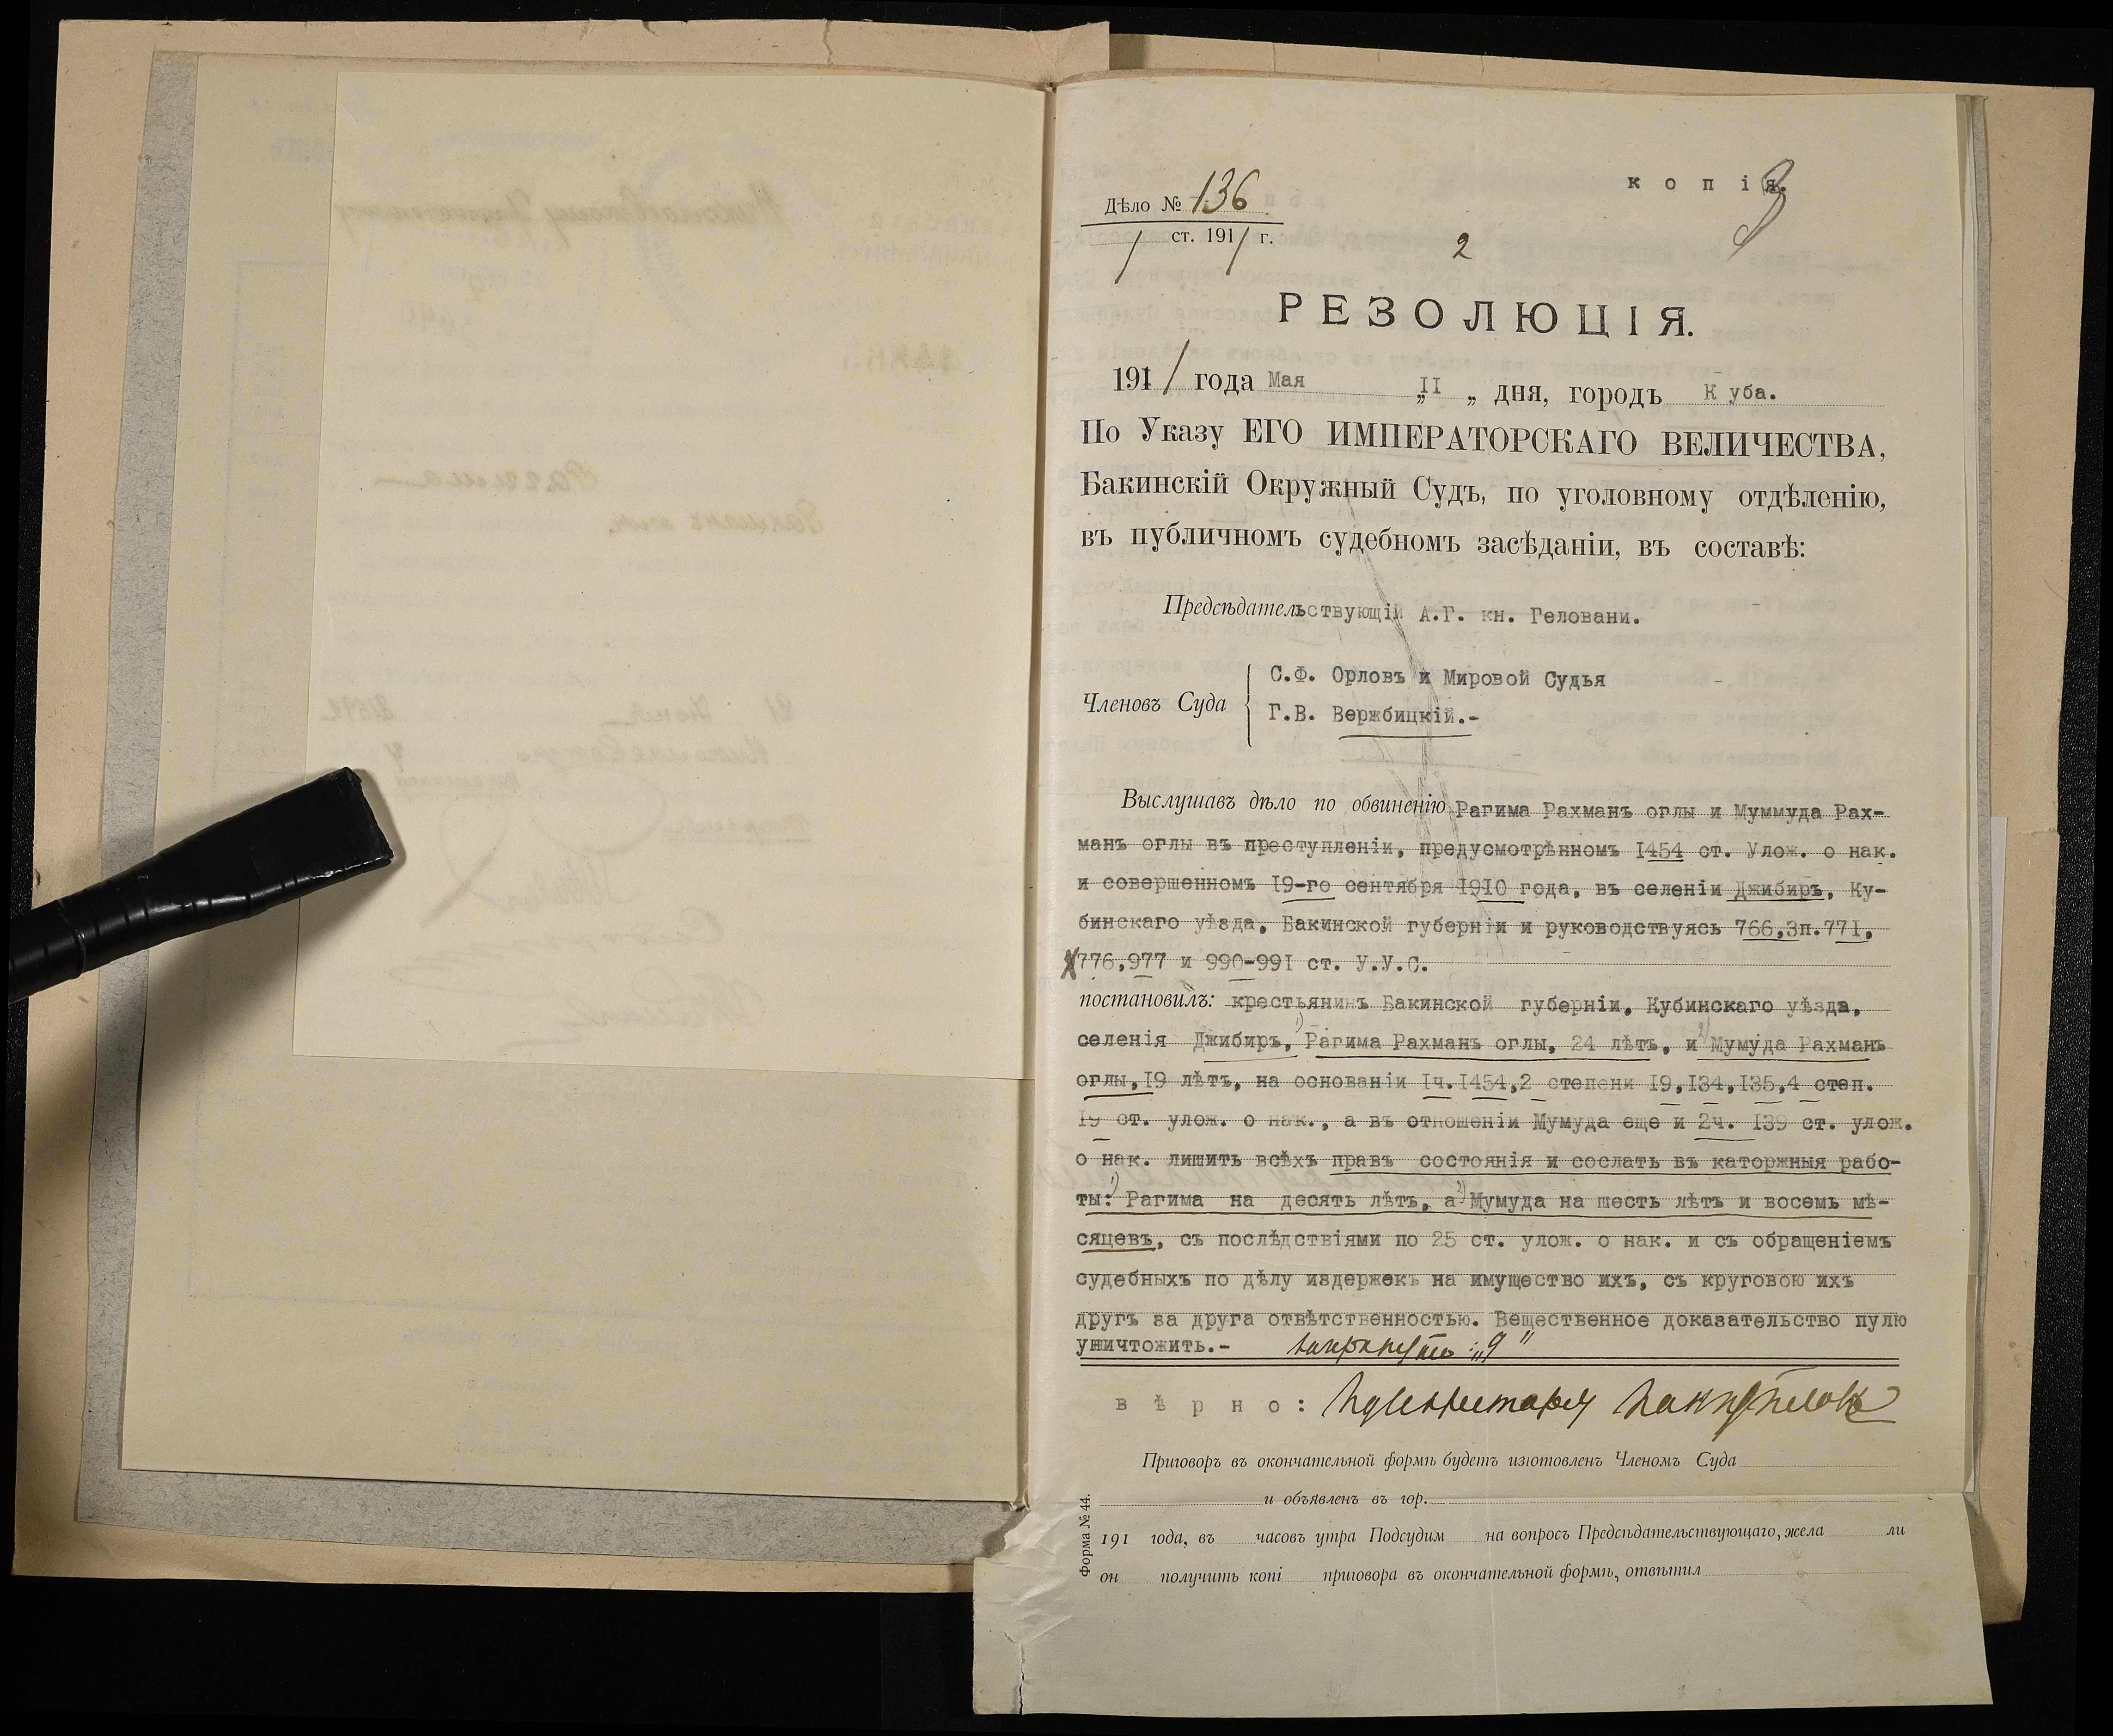 копія.
Дѣло № 136
1 ст. 1911 г.
2
РЕЗОЛЮЦІЯ.
1911 года Мая „II„ дня, городъ Куба.
По Указу ЕГО ИМПЕРАТОРСКАГО ВЕЛИЧЕСТВА,
Бакинскій Окружный Судъ, по уголовному отдѣленію,
въ публичномъ судебномъ засѣданіи, въ составѣ:
Предсѣдательствующій А.Г. кн. Геловани.
Членовъ Суда
С.Ф. Орловъ и Мировой Судья
Г.В. Вержбицкій.-
Выслушавъ дѣло по обвиненію Рагима Рахманъ оглы и Муммуда Рах-
манъ оглы въ преступленіи, предусмотрѣнномъ I454 ст. Улож. о нак.
и совершенномъ I9-го сентября I9I0 года, въ селеніи Джибиръ, Ку-
бинскаго уѣзда, Бакинской губерніи и руководствуясь 766,3п.77I,
776,977 и 990-99I ст. У.У.С.
постановилъ: крестьянинъ Бакинской губерніи, Кубинскаго уѣзда,
селенія Джибиръ, 1) Рагима Рахманъ оглы, 24 лѣтъ, и 2) Мумуда Рахманъ
оглы,I9 лѣтъ, на основаніи Iч.I454,2 степени I9,I34,I35,4 степ.
I9 ст. улож. о нак., а въ отношеніи Мумуда еще и 2ч. I39 ст. улож.
о нак. лишить всѣхъ правъ состоянія и сослать въ каторжныя рабо-
ты: 1) Рагима на десять лѣтъ, а 2) Мумуда на шесть лѣтъ и восемь мѣ-
сяцевъ, съ послѣдствіями по 25 ст. улож. о нак. и съ обращеніемъ
судебныхъ по дѣлу издержекъ на имущество ихъ, съ круговою ихъ
другъ за друга отвѣтственностью. Вещественное доказательство пулю
уничтожить.-
вѣрно:
Приговоръ въ окончательной формѣ будетъ изготовленъ Членомъ Суда
и объявленъ въ гор.
191 года, въ часовъ утра Подсудим на вопросъ Предсѣдательствующаго, жела ли
он получить копі приговора въ окончательной формѣ, отвѣтил
Форма № 44.